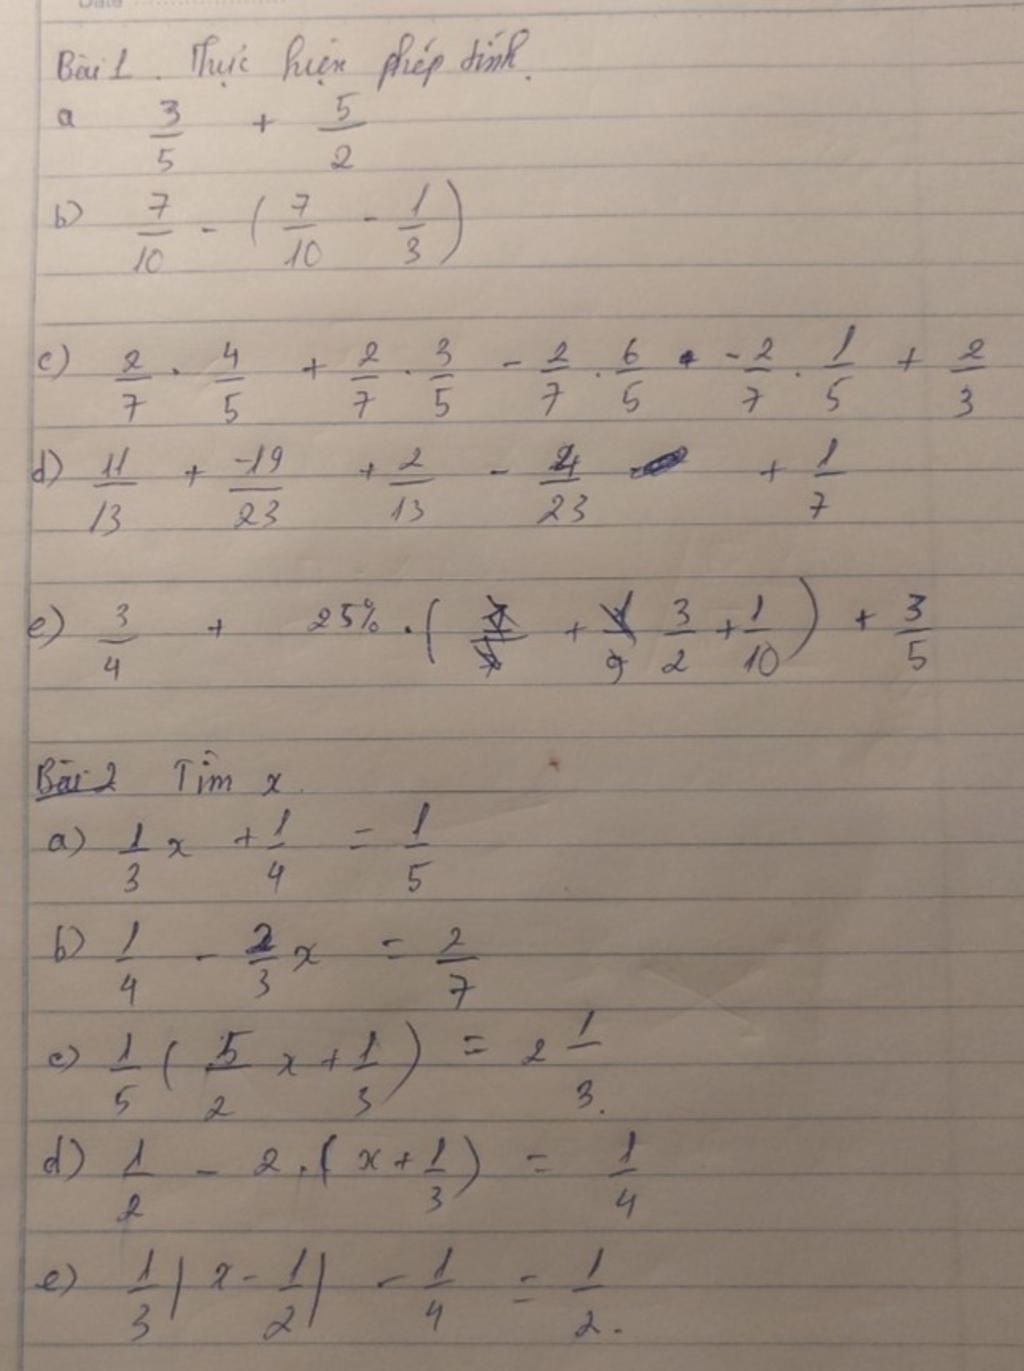 Date
Bài 1. Thực hiện phép tính.
a 3/5 + 5/2
b) 7/10 - (7/10 - 1/3)
c) 2/7 . 4/5 + 2/7 . 3/5 - 2/7 . 6/5 - 2/7 . 1/5 + 2/3
d) 11/13 + -19/23 + 2/13 - 4/23 + 1/7
e) 3/4 + 25% . (3/2 + 1/10) + 3/5
Bài 2 Tìm x.
a) 1/3 x + 1/4 = 1/5
b) 1/4 - 2/3 x = 2/7
c) 1/5 (5/2 x + 1/3) = 2 1/3.
d) 1/2 - 2.(x + 1/3) = 1/4
e) 1/3 | x - 1/2 | - 1/4 = 1/2.